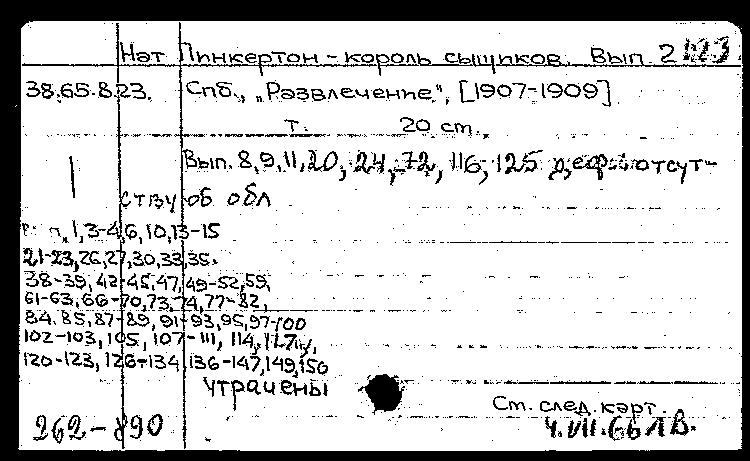 Нат Пинкертон - король сыщиков. Вып. 2
38.65.823. Спб., „Развлечение", [1907-1909]
т. 20 ст.
Вып. 8, 9, 11, 20, 24, 72, 116, 125 отсут-
ству об обл
1, 3-4, 6, 10, 13-15
21-23, 26, 27, 30, 33, 35.
38-39, 42-45, 47, 49-52, 59,
61-63, 66-70, 73, 74, 77-82,
84. 85, 87-89, 91-93, 95, 97-100
102-103, 105, 107-111, 114, 117
120-123, 126-134, 136-147, 149, 150
утрачены
См. след. карт.
262-890 4.VII.66 ЛВ.